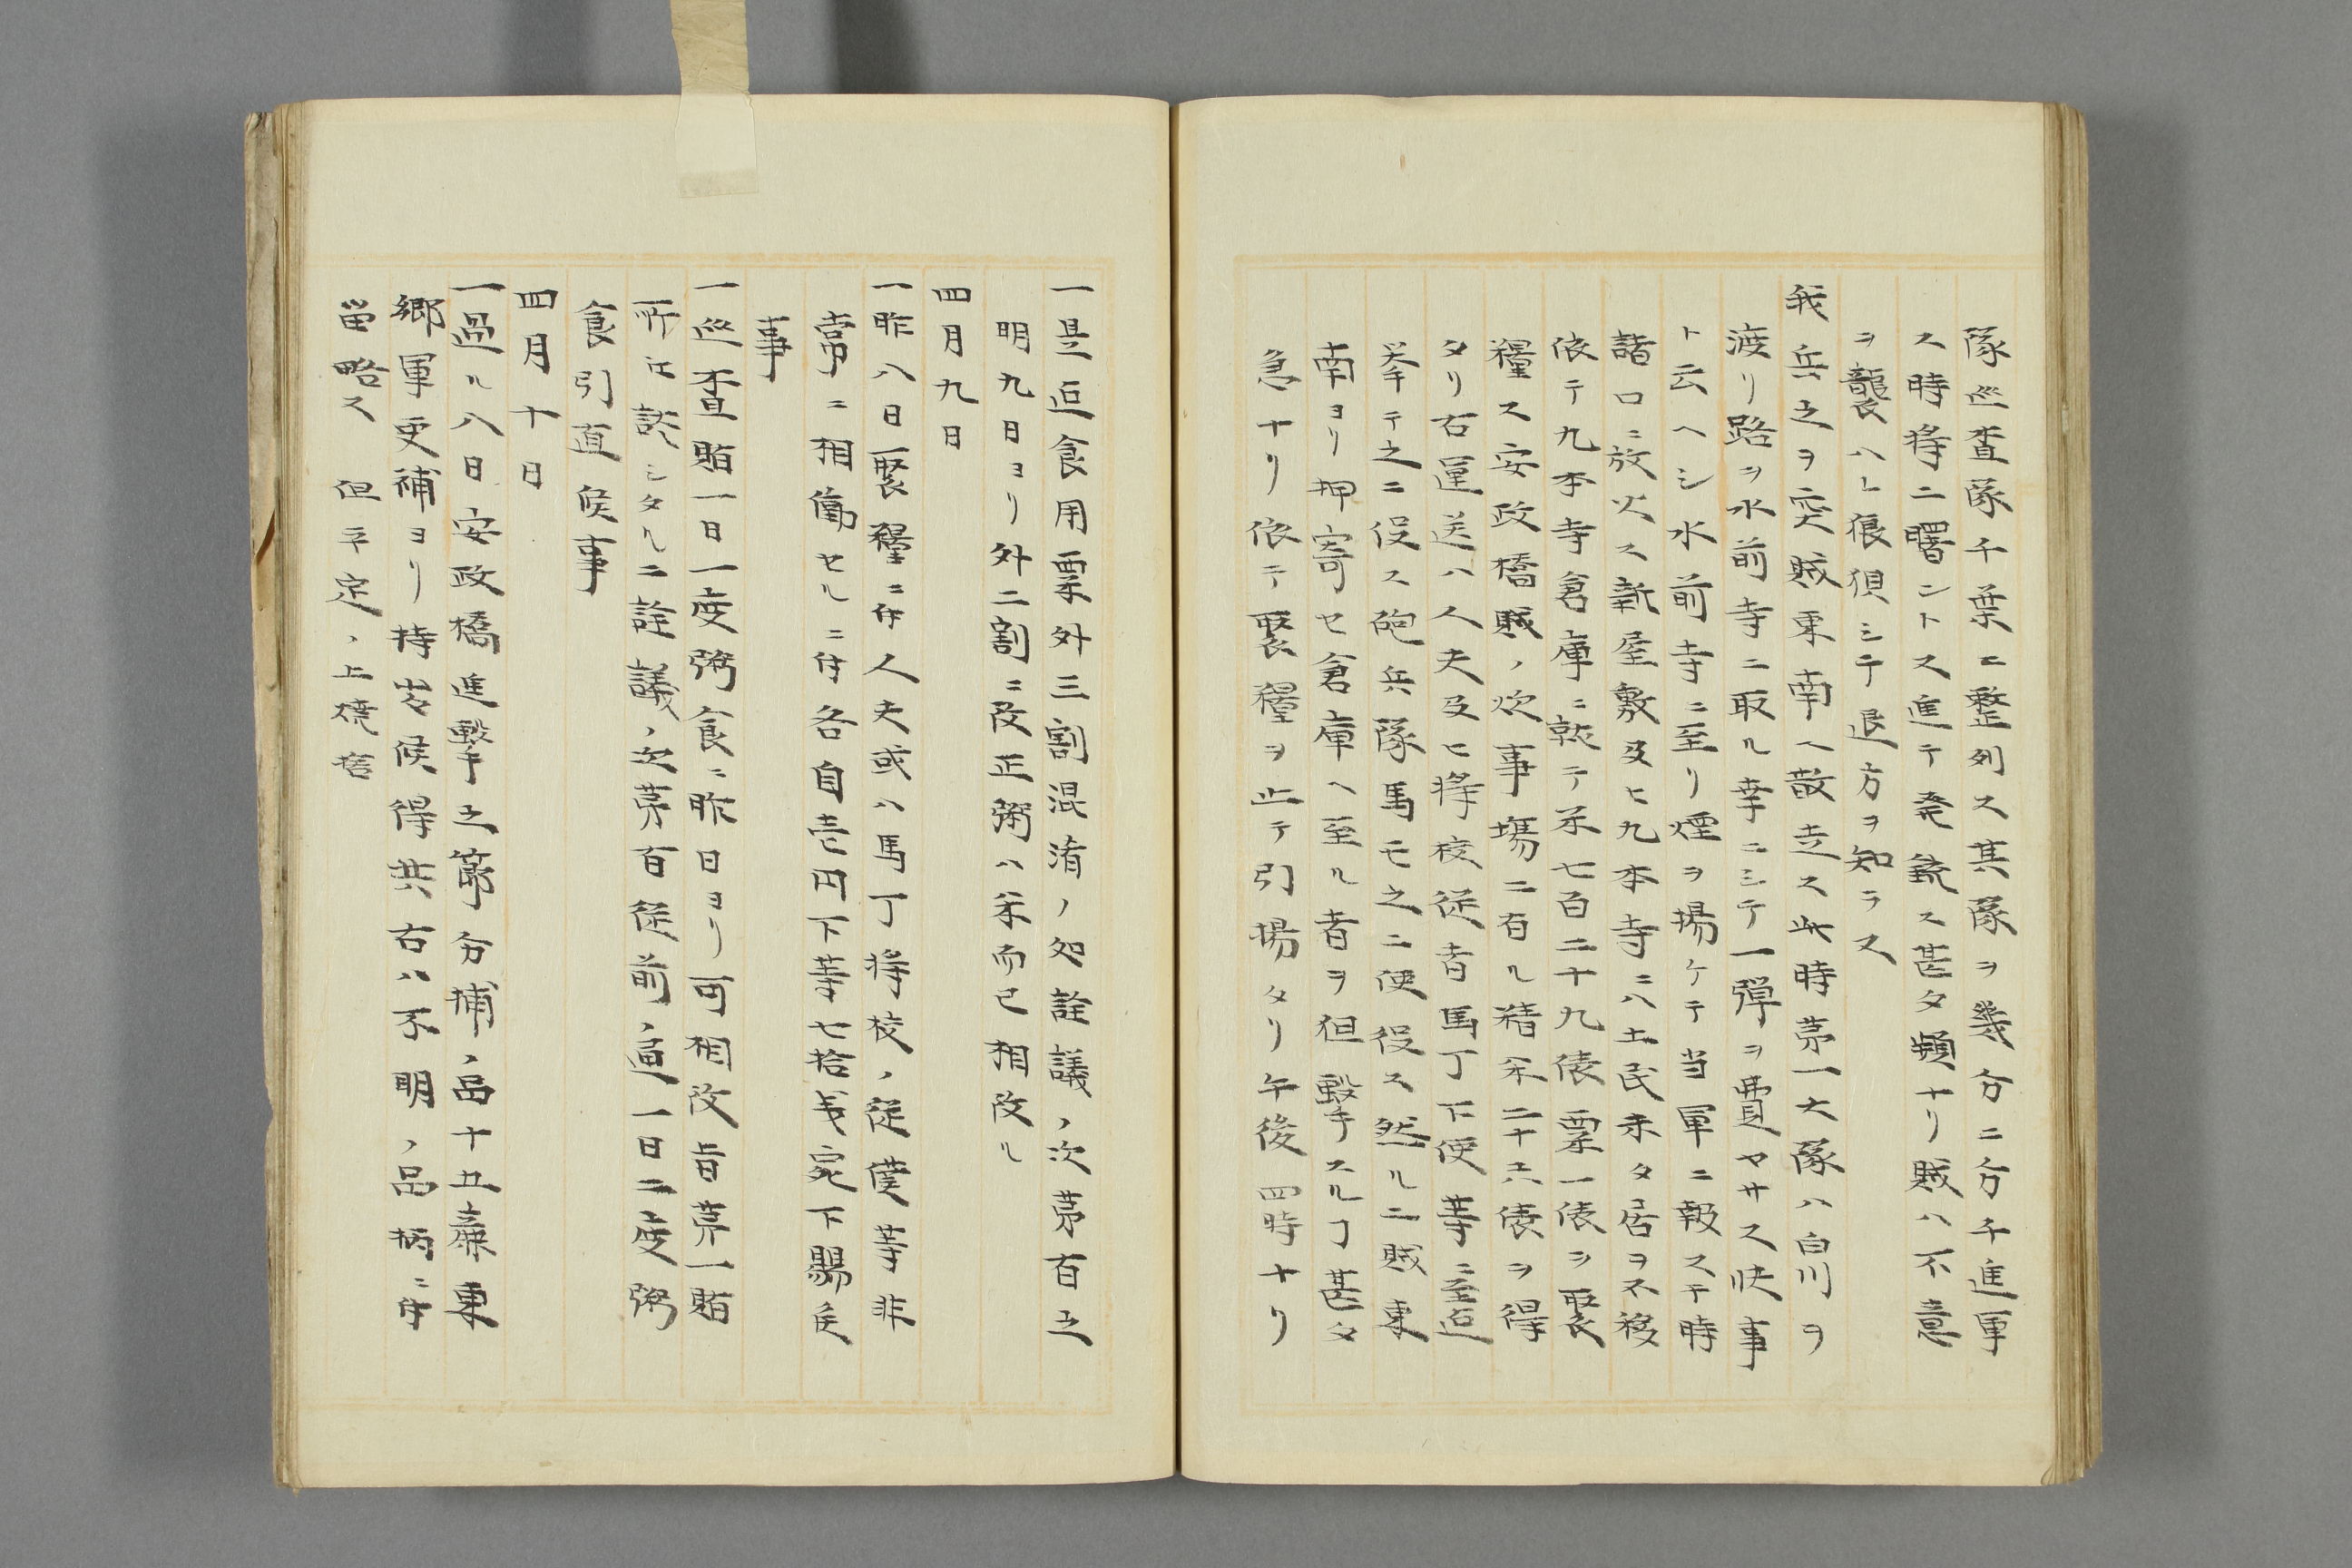 隊巡査隊千葉ニ整列ス其隊ヲ幾分ニ分チ進軍
ス時将ニ曙ントス進テ発銃ス甚タ頻ナリ賊ハ不意
ヲ襲ハレ狼狽シテ退方ヲ知ラス
我兵之ヲ突賊東南ヘ散走ス此時第一大隊ハ白川ヲ
渡リ路ヲ水前寺ニ取ル幸ニシテ一弾ヲ費ヤサス快事
ト云ヘシ水前寺ニ至リ煙ヲ揚ケテ当軍ニ報ステ時
諸口ニ放火ス新屋敷及ヒ九本寺ニハ土民未タ居ヲ不移
依テ九本寺倉庫ニ就テ米七百二十九俵粟一俵ヲ聚
糧ス安政橋賊ノ炊事場ニ有ル精米二十六俵ヲ得
タリ右運送ハ人夫及ヒ将校従者馬丁下使等ニ至迄
挙テ之ニ役ス砲兵隊馬モ之ニ使役ス然ルニ賊東
南ヨリ押寄セ倉庫ヘ至ル者ヲ但撃スルヿ甚タ
急ナリ依テ聚糧ヲ止テ引揚タリ午後四時ナリ
一是迄食用粟外三割混淆ノ処詮議ノ次第有之
明九日ヨリ外二割ニ改正粥ハ米而已相改ル
四月九日
一昨八日聚糧ニ付人夫或ハ馬丁将校ノ従僕等非
常ニ相働セルニ付各自壱円下等七拾銭宛下賜候
事
一巡査賄一日一度粥食ニ昨日ヨリ可相改旨第一賄
所江談シタルニ詮議ノ次第有従前ノ通一日二度粥
食引直候事
四月十日
一過ル八日安政橋進撃之節分捕ノ品十五廉東
郷軍吏補ヨリ持出候得共右ハ不明ノ品柄ニ付
留略ス 但平定ノ上焼捨